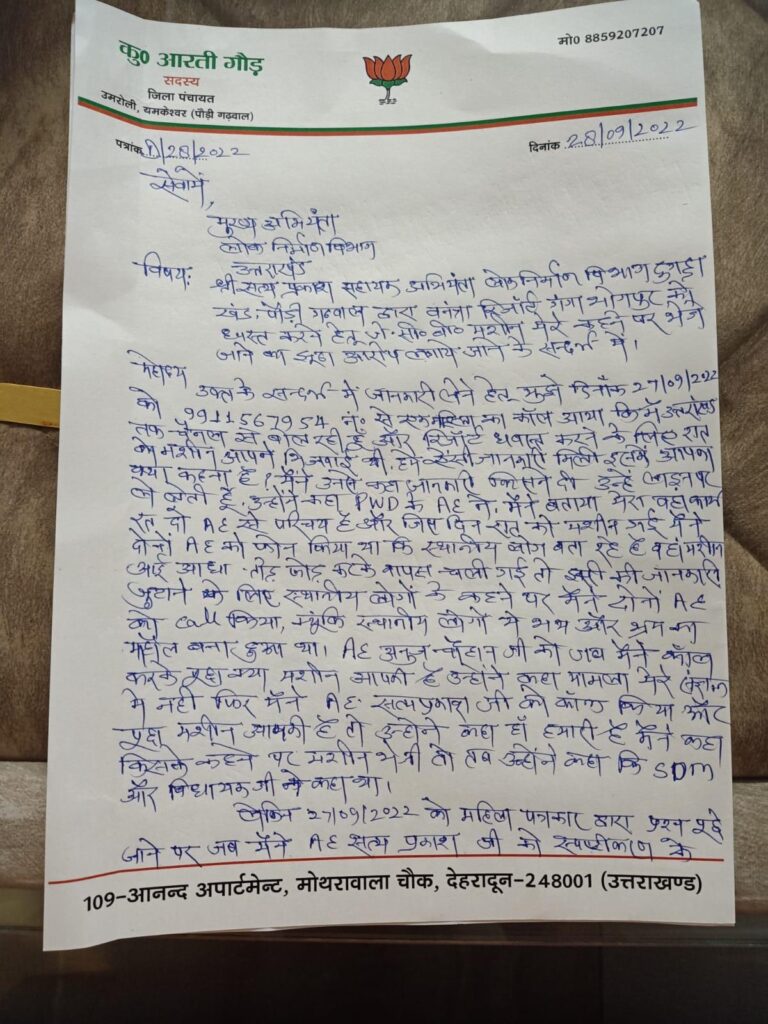 कु0 आरती गौड़
सदस्य
जिला पंचायत
उमरोली, यमकेश्वर (पौड़ी गढ़वाल)
मो0 8859207207
पत्रांक D/28/2022
दिनांक 28/09/2022
सेवामें,
मुख्य अभियंता
लोक निर्माण विभाग
उत्तराखंड
विषय: श्री सत्य प्रकाश सहायक अभियंता लोक निर्माण विभाग दुगड्डा
खंड पौड़ी गढ़वाल द्वारा वनंत्रा रिजॉर्ट गंगा भोगपुर को
ध्वस्त करने हेतु जे० सी० बी० मशीन मेरे कहने पर भेजे
जाने का झूठा आरोप लगाये जाने के सन्दर्भ में।
महोदय
उक्त के सन्दर्भ में जानकारी लेने हेतु मुझे दिनाँक 27/09/2022
को 9911567954 नं० से एक महिला का कॉल आया कि मैं उत्तराखंड
तक चैनल से बोल रही हूँ और रिजॉर्ट ध्वस्त करने के लिए रात
को मशीन आपने भिजवाई थी, हमें ऐसी जानकारी मिली इसमें आपका
क्या कहना है? मैंने उनसे कहा जानकारी किसने दी उन्हें लाइन पर
ले लेती हूँ, उन्होंने कहा PWD के AE ने, मैंने बताया मेरा वहाँ कार्यरत
दो AE से परिचय है और जिस दिन रात को मशीन गई मैंने
दोनों AE को फोन किया था कि स्थानीय लोग बता रहे है वहां मशीन
आई आधा तोड़ फोड़ करके वापस चली गई तो इसी की जानकारी
जुटाने के लिए स्थानीय लोगों के कहने पर मैंने दोनों AE
को call किया, क्यूंकि स्थानीय लोगों में भय और भ्रम का
माहौल बना हुआ था। AE अनुज चौहान जी को जब मैंने कॉल
करके पूछा क्या मशीन आपकी है उन्होंने कहा मामला मेरे
में नहीं फिर मैंने AE सत्यप्रकाश जी को कॉल किया और
पूछा मशीन आपकी है तो उन्होंने कहा हाँ हमारी है मैंने कहा
किसके कहने पर मशीन भेजी तो तब उन्होंने कहा कि SDM
और विधायक जी ने कहा था।
लेकिन 27/09/2022 को महिला पत्रकार द्वारा प्रश्न पूछे
जाने पर जब मैंने AE सत्य प्रकाश जी को स्पष्टीकरण के
109-आनन्द अपार्टमेन्ट, मोथरावाला चौक, देहरादून-248001 (उत्तराखण्ड)